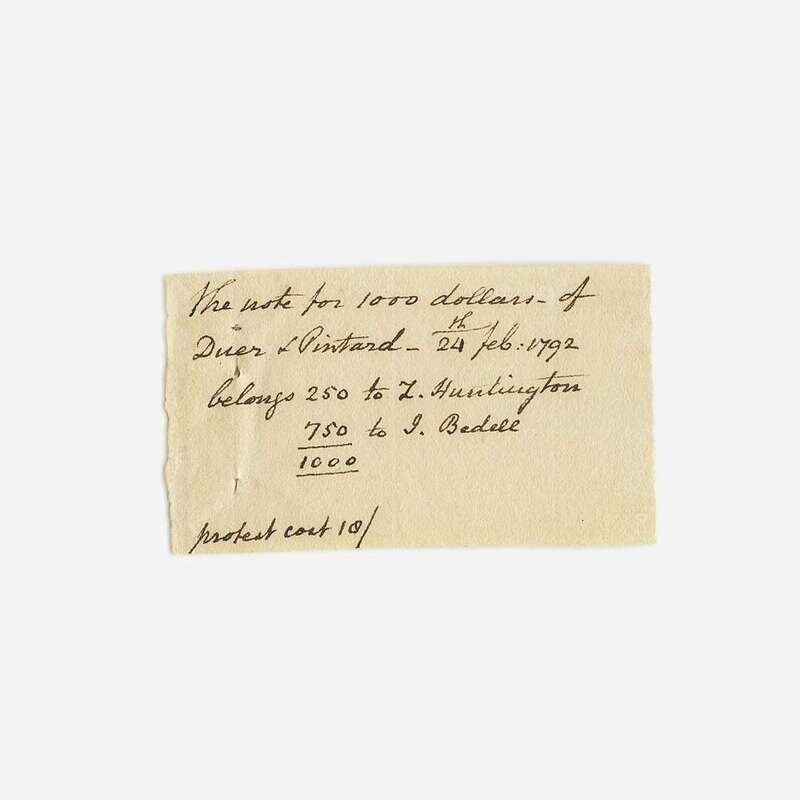 The note for 1000 dollars - of
Duer & Pintard - 24th feb: 1792
belongs 250 to Z. Huntington
750 to J. Bedell
1000
protest cost 18/